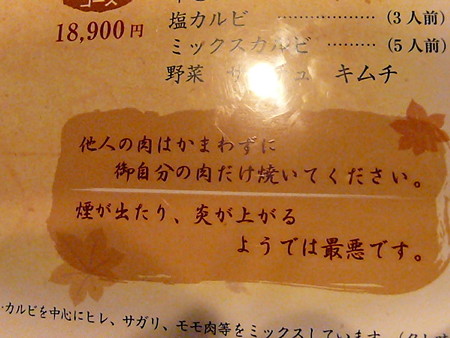 コース
18,900円
塩カルビ ……………… (3人前)
ミックスカルビ ……… (5人前)
野菜 キムチ
他人の肉はかまわずに
御自分の肉だけ焼いてください。
煙が出たり、炎が上がる
ようでは最悪です。
カルビを中心にヒレ、サガリ、モモ肉等をミックスしています。